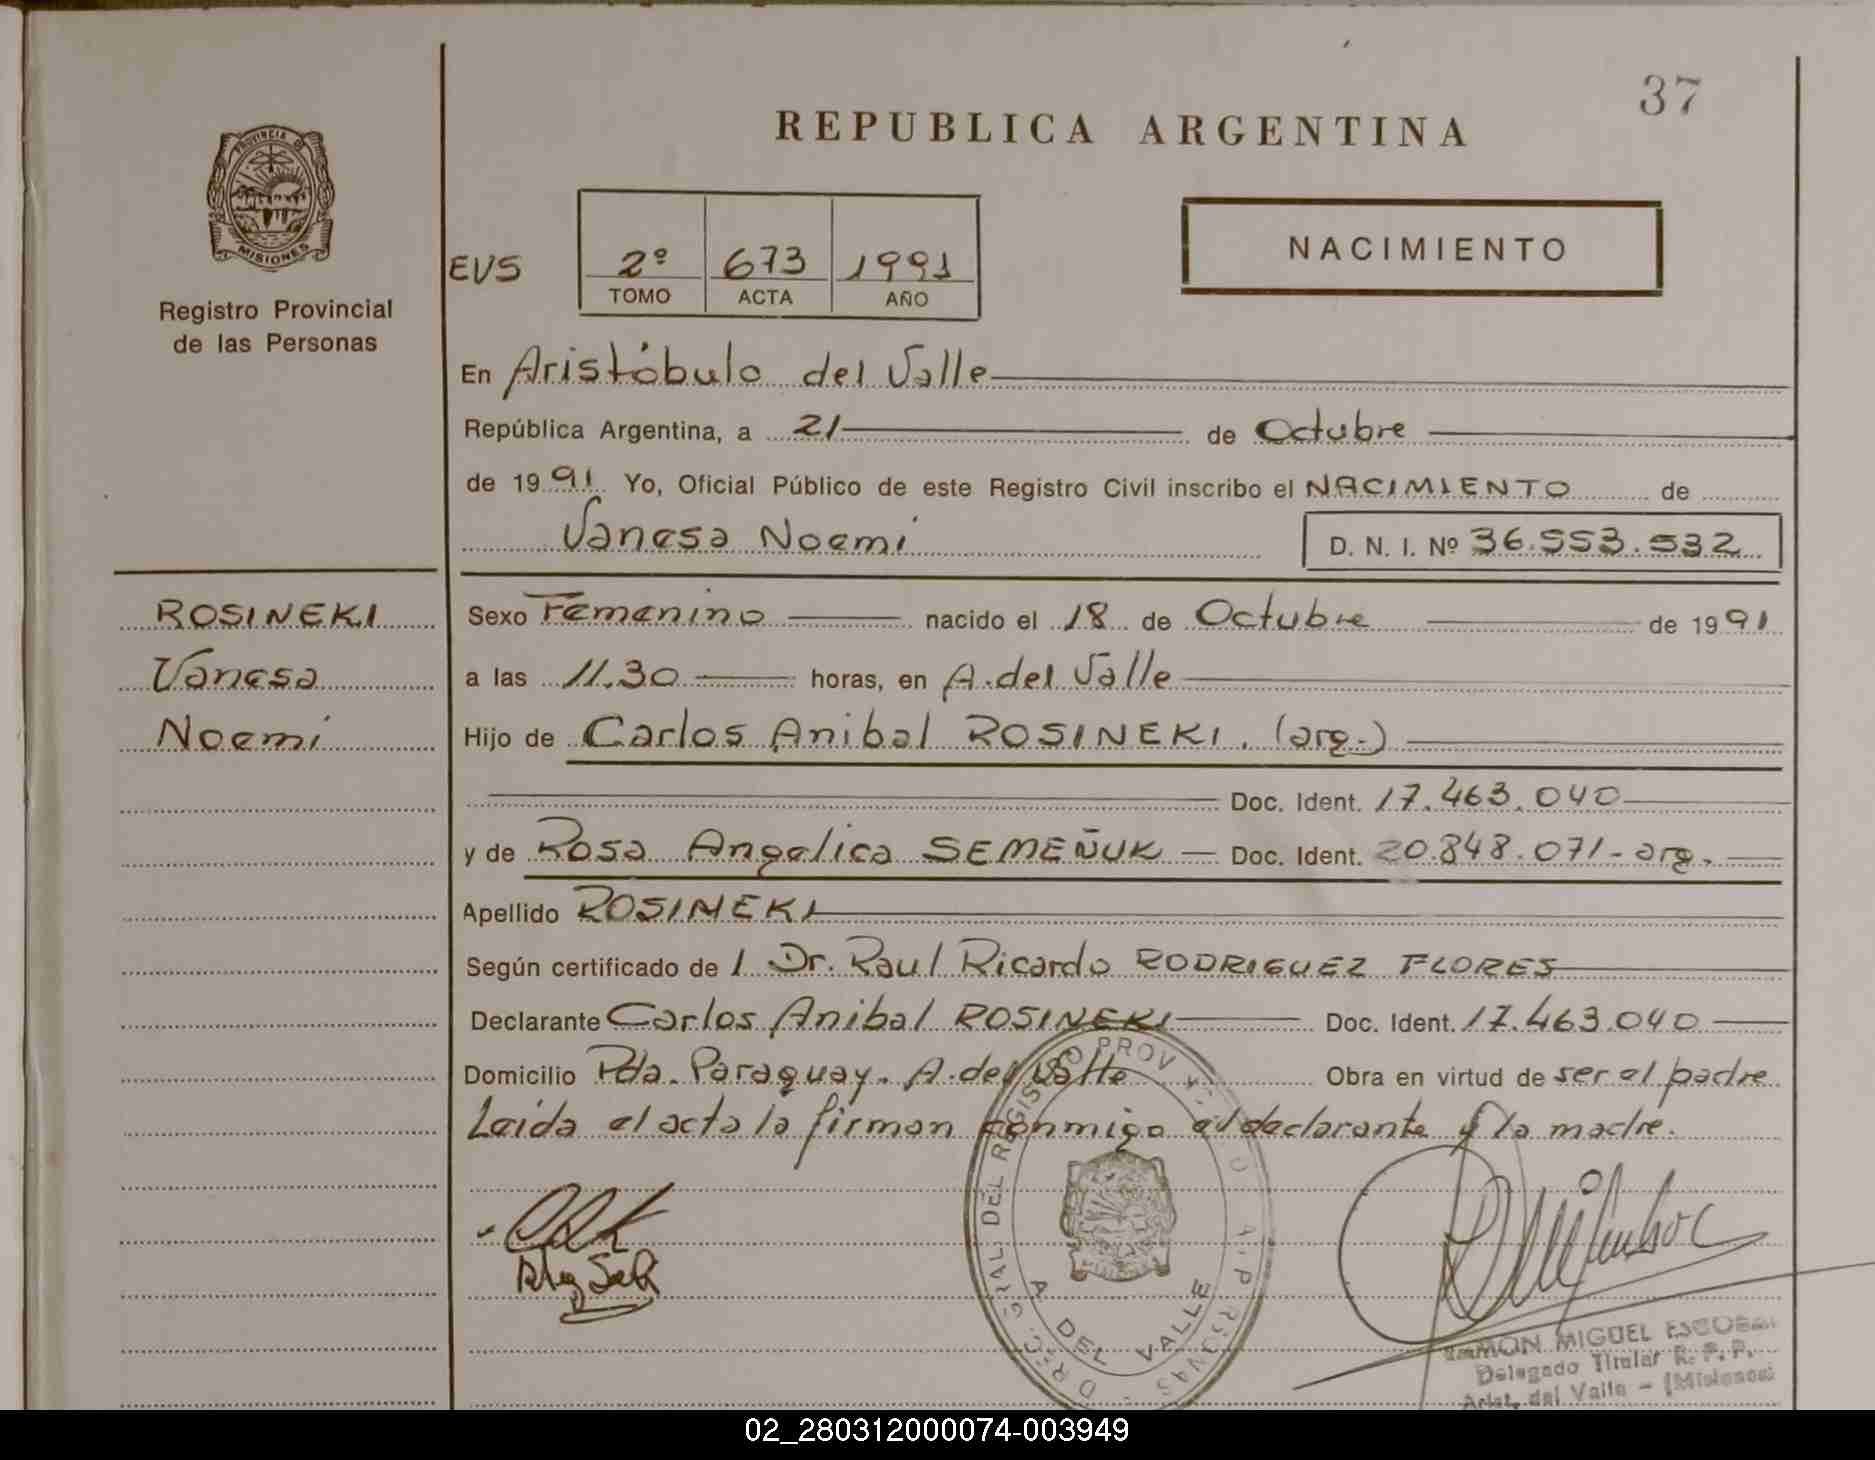 37
REPUBLICA ARGENTINA
PROVINCIA D
MISIONES
Registro Provincial
de las Personas
EVS
2º 673 1991
TOMO ACTA AÑO
NACIMIENTO
En Aristóbulo del Valle
República Argentina, a 21 de Octubre
de 1991 Yo, Oficial Público de este Registro Civil inscribo el NACIMIENTO de
Vanesa Noemi D. N. I. Nº 36.553.532
ROSINEKI
Vanesa
Noemi
Sexo Femenino nacido el 18 de Octubre de 1991
a las 11.30 horas, en A. del Valle
Hijo de Carlos Anibal ROSINEKI. (arg.)
Doc. Ident. 17.463.040
y de Rosa Angelica SEMEÑUK Doc. Ident. 20.848.071 - arg.
Apellido ROSINEKI
Según certificado de 1 Dr. Raul Ricardo RODRIGUEZ FLORES
Declarante Carlos Anibal ROSINEKI Doc. Ident. 17.463.040
Domicilio Pda. Paraguay. A. del Valle Obra en virtud de ser el padre
Leida el acta la firman conmigo el declarante y la madre.
GRAL. DEL REGISTRO PROV
A. DEL VALLE
MIGUEL ESCOBAR
Delegado Titular R. P. P.
Arist. del Valle - (Misiones)
02_280312000074-003949